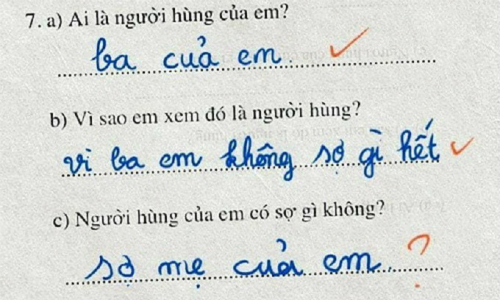 7. a) Ai là người hùng của em?
ba cuả em.
b) Vì sao em xem đó là người hùng?
vì ba em không sợ gì hết
c) Người hùng của em có sợ gì không?
sợ mẹ cuả em. ?